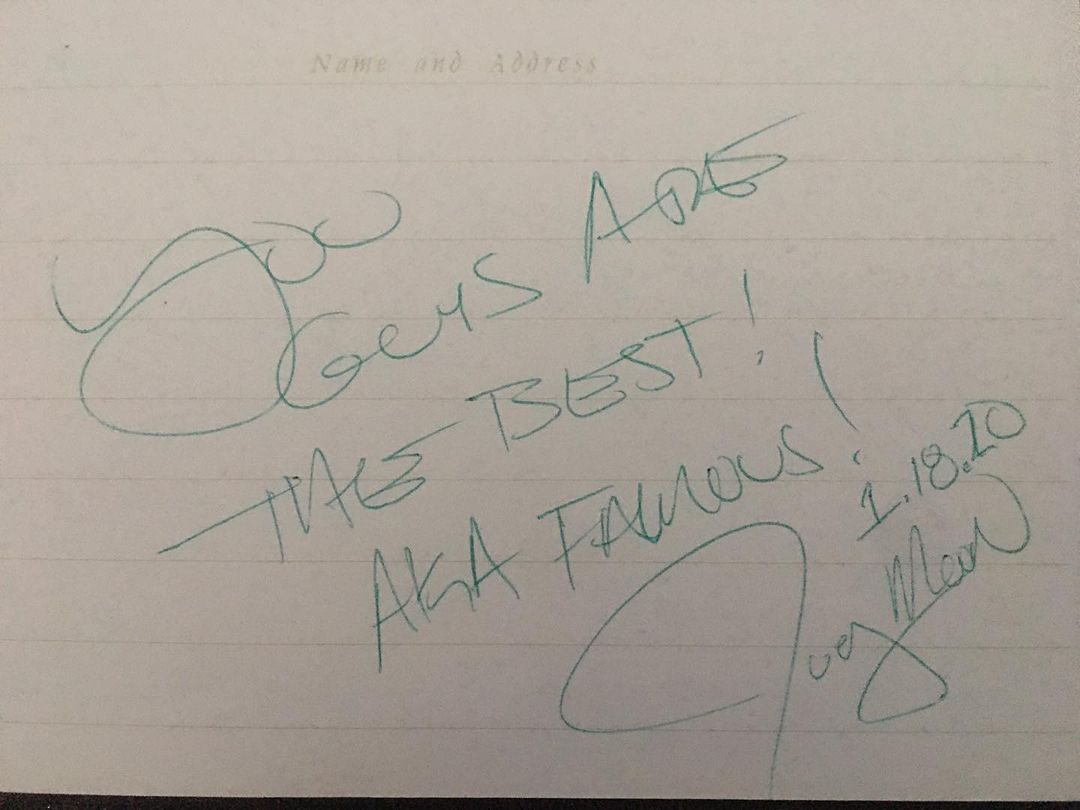 Name and Address
You
Guys ARE
THE BEST!
AKA FAMOUS!
1.18.20